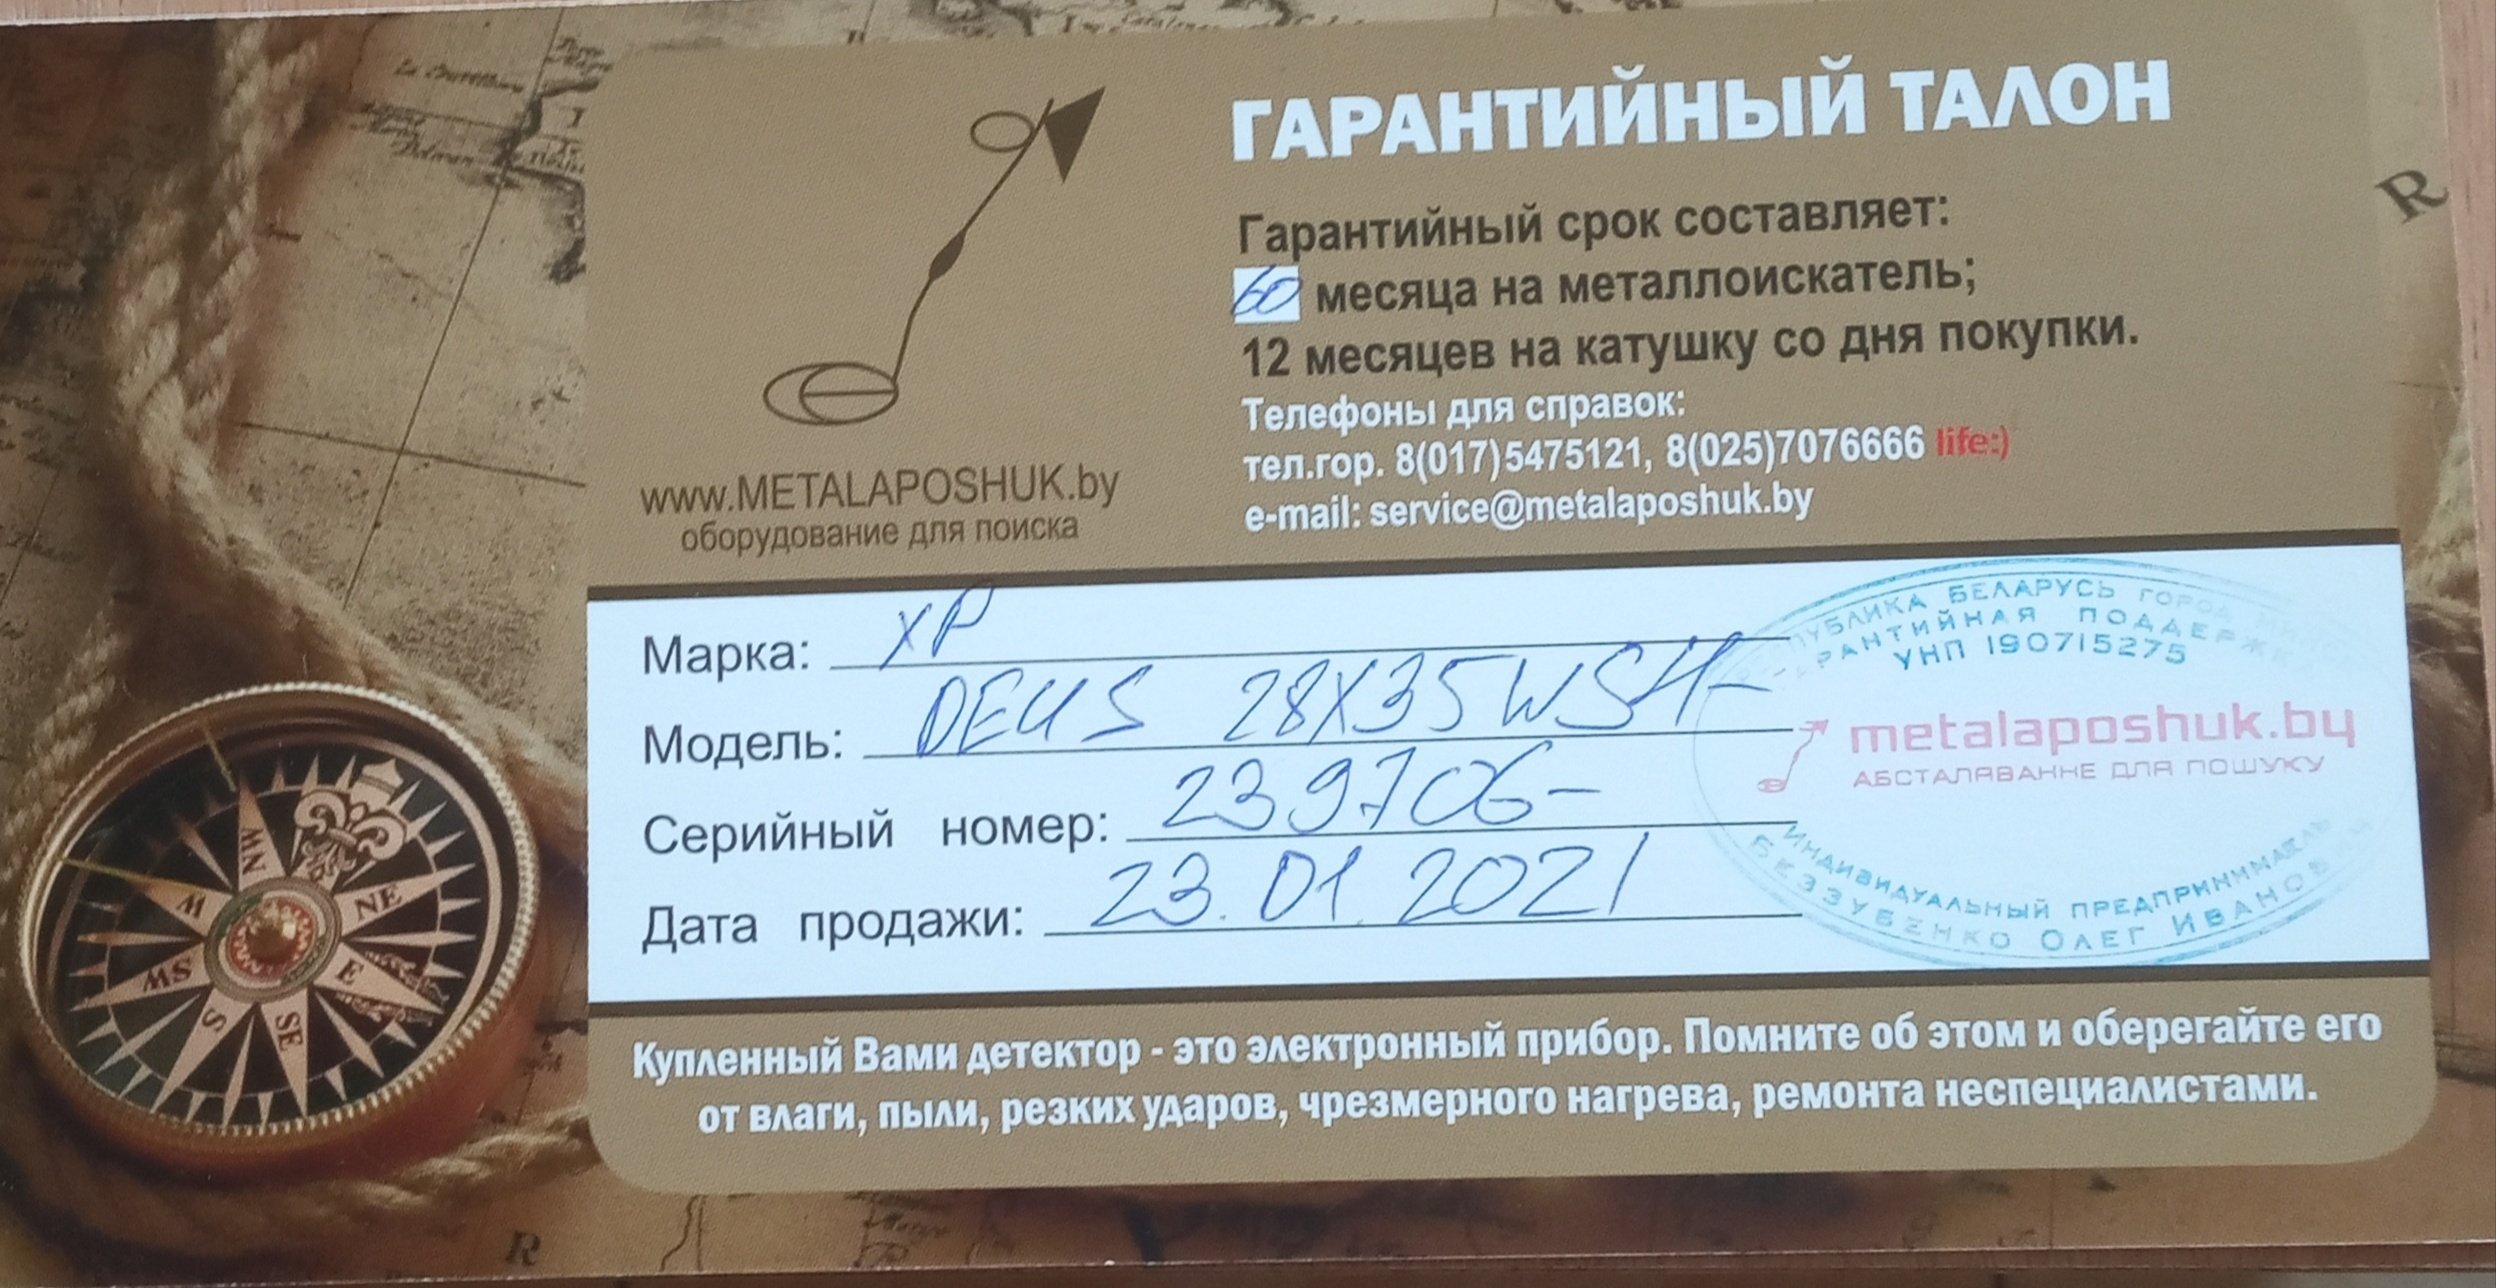 ГАРАНТИЙНЫЙ ТАЛОН
Гарантийный срок составляет:
60 месяца на металлоискатель;
12 месяцев на катушку со дня покупки.
Телефоны для справок:
тел.гор. 8(017)5475121, 8(025)7076666 life:)
e-mail: service@metalaposhuk.by
www.METALAPOSHUK.by
оборудование для поиска
Марка: XP
Модель: DEUS 28X35 WS4-
Серийный номер: 239706-
Дата продажи: 23.01.2021
БЕЛАРУСЬ ГОРОД
ПОДДЕРЖК
УНП 190715275
metalaposhuk.by
АБСТАЛЯВАННЕ ДЛЯ ПОШУКУ
ИНДИВИДУАЛЬНЫЙ ПРЕДПРИНИМАТЕЛЬ
БЕЗЗУБЕНКО ОЛЕГ ИВАНОВ
Купленный Вами детектор - это электронный прибор. Помните об этом и оберегайте его
от влаги, пыли, резких ударов, чрезмерного нагрева, ремонта неспециалистами.
NE
E
SE
S
SW
W
NW
R
R